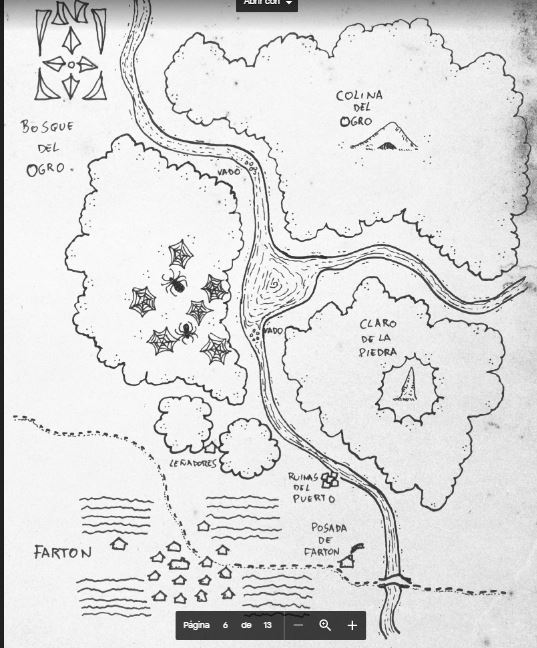 Abrir con
COLINA
DEL
OGRO
BOSQUE
DEL
OGRO.
VADO
VADO
CLARO
DE LA
PIEDRA
LEÑADORES
RUINAS
DEL
PUERTO
POSADA
DE
FARTON
FARTON
Página 6 de 13